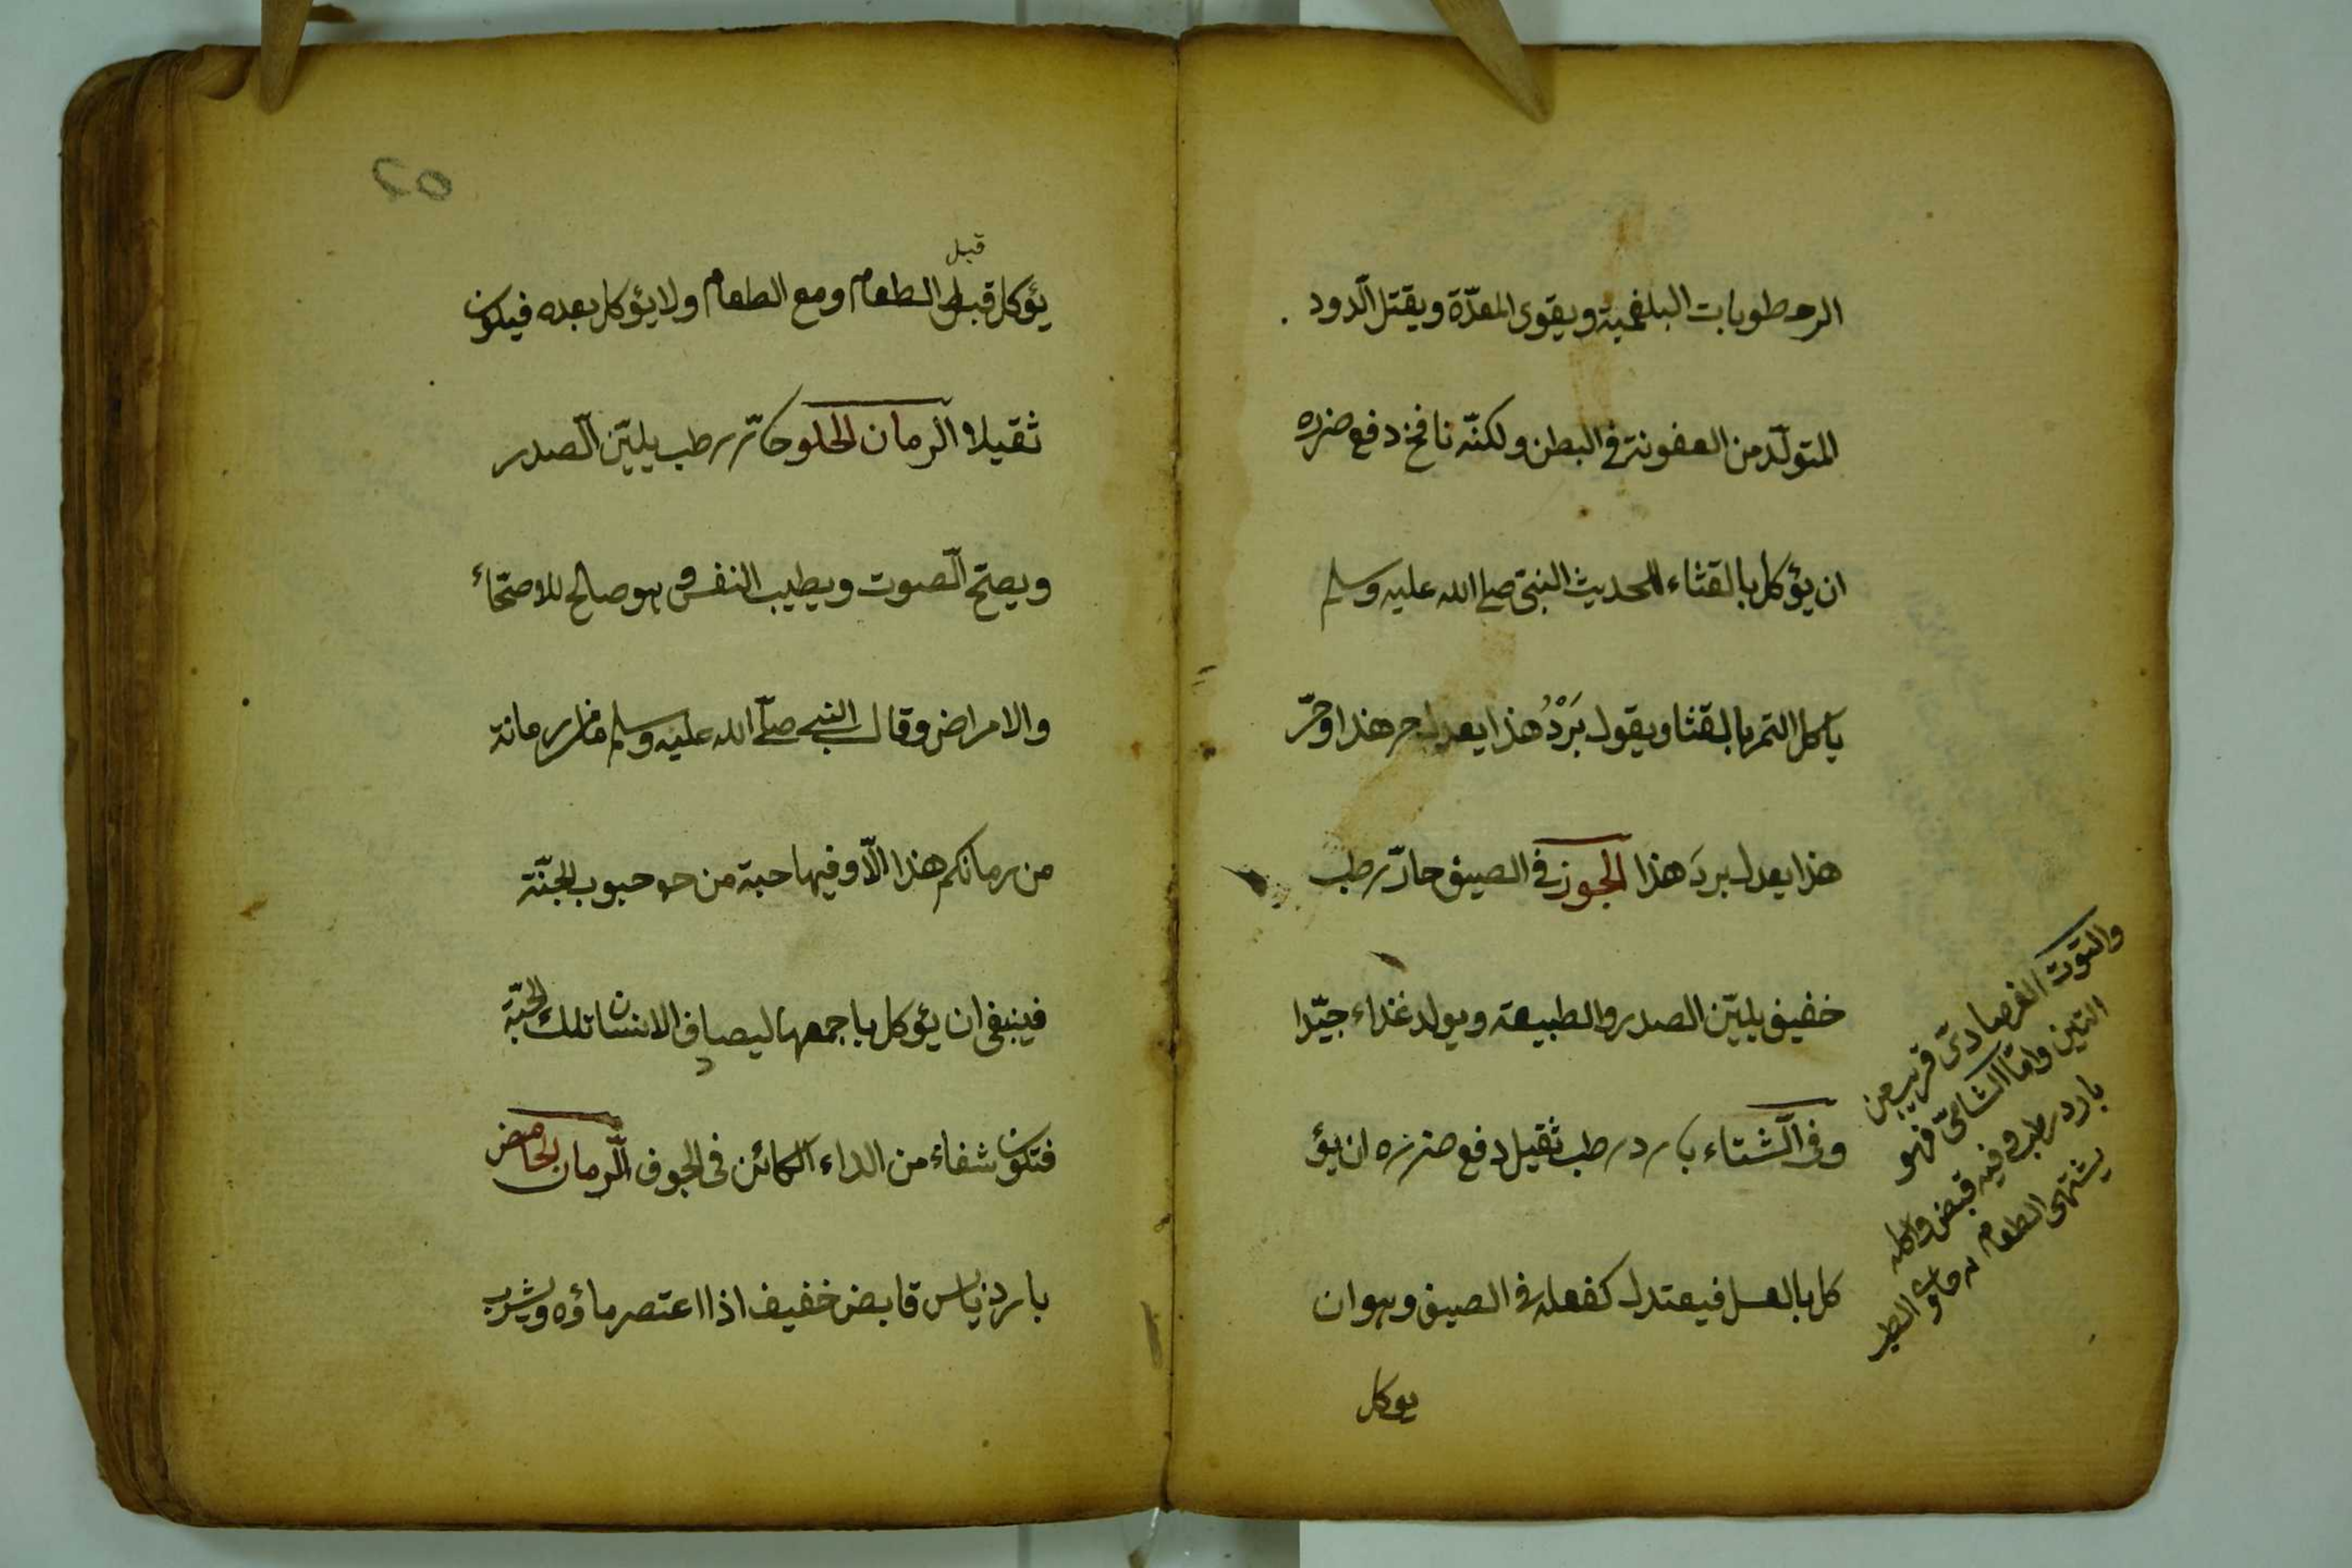 الرطوبات البلغمية ويقوى المعدّة ويقتل الّدود
المتولّد من العفونة فى البطن ولكنّه نافخ دفع ضرره
ان يؤكل بالقثاء لحديث النبىّ صلى الله عليه وسلم
ياكل التمر بالقثا ويقول بَرْدُ هذا يعدل حر هذا وحرّ
هذا يعدل بردَ هذا الجوز فى الصيف حارّ رطب
خفيف يليّن الصدر والطبيعة ويولد غذاء جيّدا
وفى الّشتاء بارد رطب ثقيل دفع ضرره ان يؤ
كل بالعسل فيعتدل كفعله فى الصيف وهو ان
يوكل
والتوت الفرصادىّ قريب من
التين وامّا الشامىّ فهو
بارد رطب وفيه قبض واكله
يشتهى الطعام
٥٢
قبل
يؤكل قبل الطعام ومع الطعام ولا يؤكل بعده فيكون
ثقيلا الّرمان الحلو حارّ رطب يليّن الّصدر
ويصتح الّصوت ويطيب النفس وهو صالح للاصحّاء
والامراض وقال النبى صلّى الله عليه وسلم ما من رمانة
من رمانكم هذا الّا وفيها حبة من حبوب الجنّة
فينبغى ان يؤكل باجمعها ليصادف الانسان تلك الحبّة
فتكون شفاء من الداء الكائن فى الجوف الّرمان الحامض
بارد يابس قابض خفيف اذا اعتصر ماؤه ويشرب